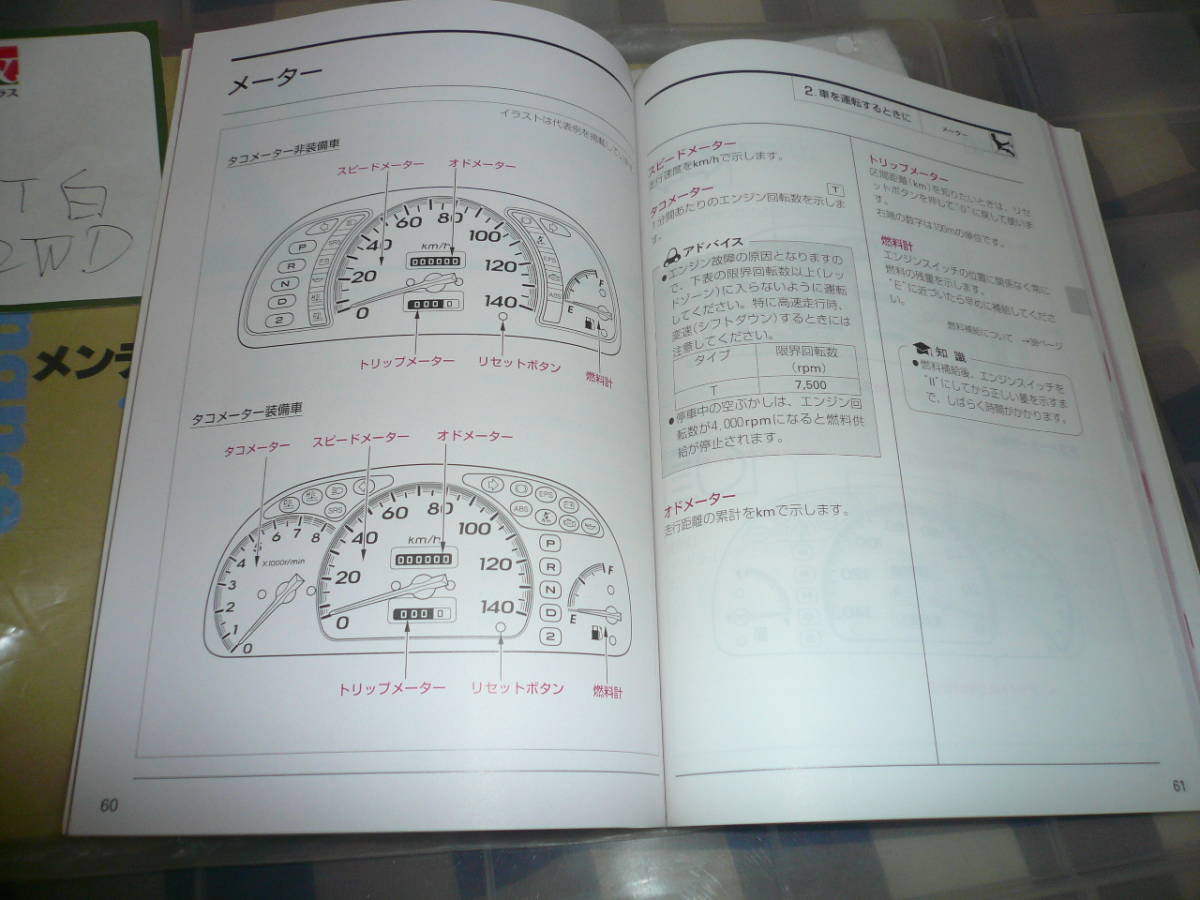 ラス
T白
2WD
メンテ
nance
メーター
イラストは代表例を掲載しています
タコメーター非装備車
スピードメーター オドメーター
P
R
N
D
2
SRS
EPS
ABS
0 20 40 60 80 100 120 140
km/h
000000
000 0
F
E
トリップメーター リセットボタン 燃料計
タコメーター装備車
タコメーター スピードメーター オドメーター
SRS
EPS
ABS
0 1 2 3 4 5 6 7 8
X1000r/min
0 20 40 60 80 100 120 140
km/h
000000
000 0
P
R
N
D
2
F
E
トリップメーター リセットボタン 燃料計
60
2. 車を運転するときに
メーター
スピードメーター
走行速度をkm/hで示します。
タコメーター T
1分間あたりのエンジン回転数を示しま
す。
アドバイス
●エンジン故障の原因となりますの
で、下表の限界回転数以上(レッ
ドゾーン)に入らないように運転
してください。特に高速走行時、
変速(シフトダウン)するときには
注意してください。
タイプ 限界回転数
(rpm)
T 7,500
●停車中の空ぶかしは、エンジン回
転数が4,000rpmになると燃料供
給が停止されます。
オドメーター
走行距離の累計をkmで示します。
トリップメーター
区間距離(km)を知りたいときは、リセ
ットボタンを押して"0"に戻して使いま
す。
右端の数字は100mの単位です。
燃料計
エンジンスイッチの位置に関係なく常に
燃料の残量を示します。
"E"に近づいたら早めに補給してくださ
い。
燃料補給について →98ページ
知識
●燃料補給後、エンジンスイッチを
"Ⅱ"にしてから正しい量を示すま
で、しばらく時間がかかります。
61